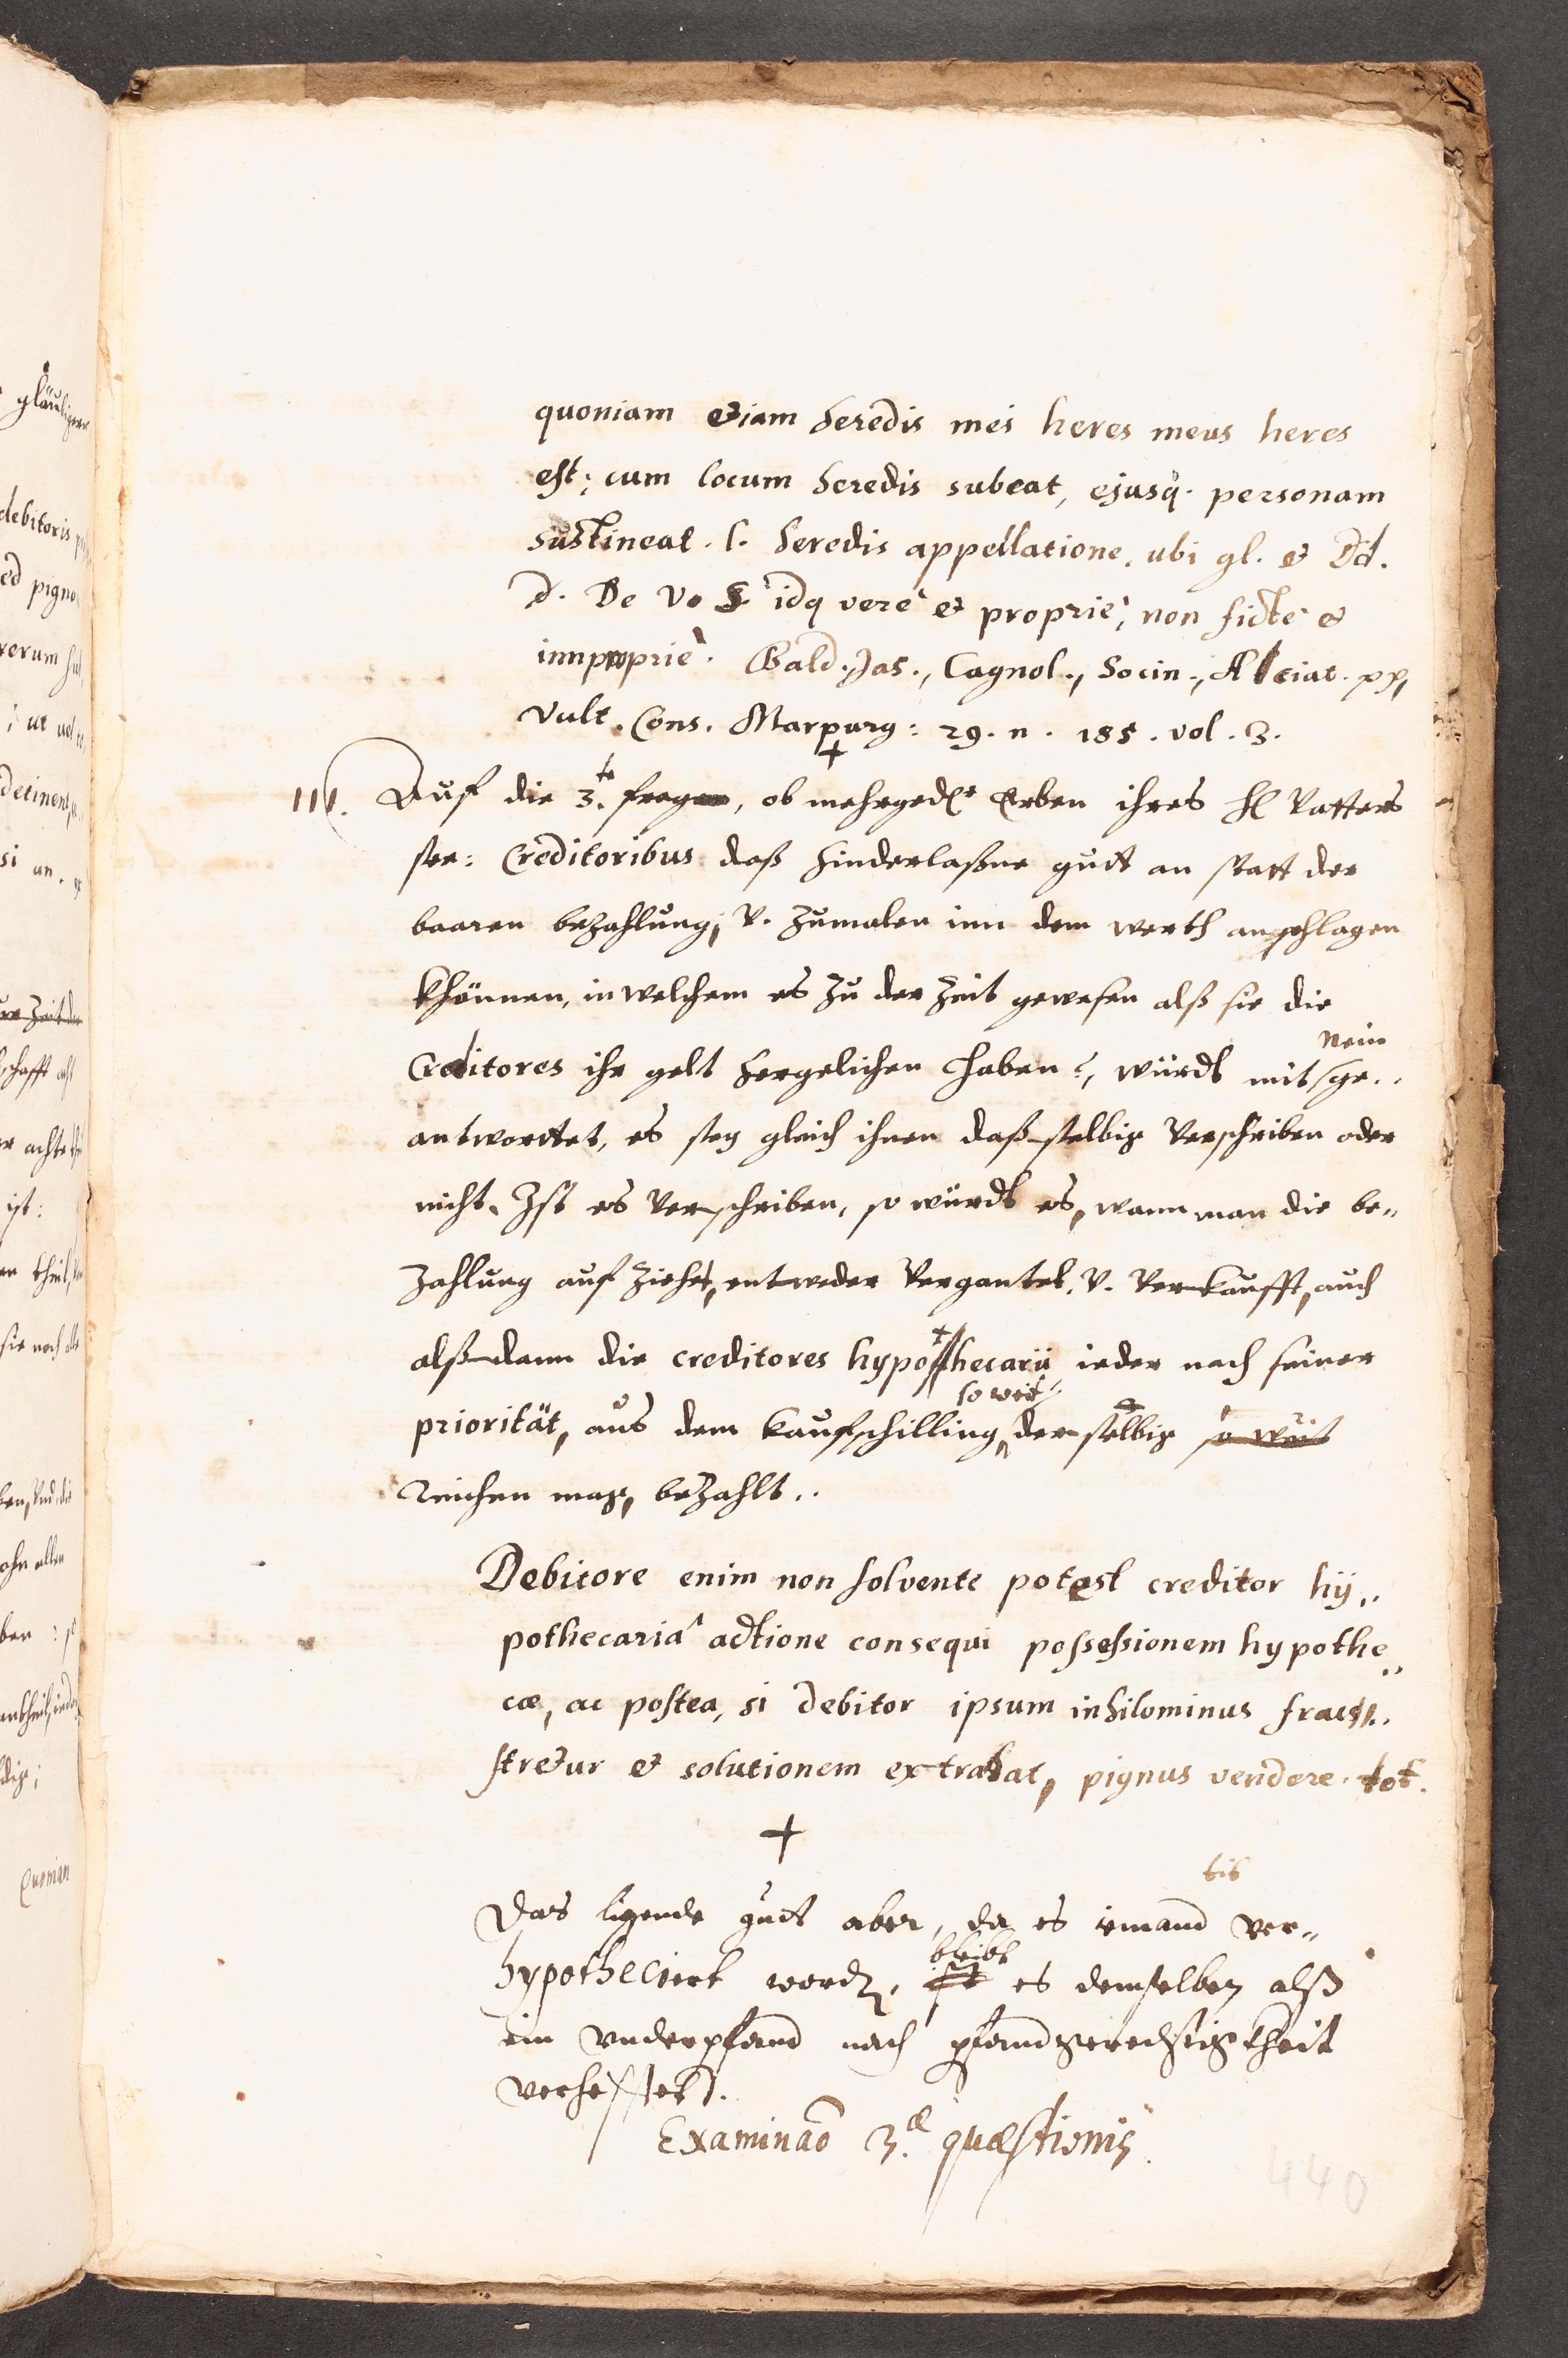 quoniam etiam heredis mei heres meus heres
est; cum locum heredis subeat, ejusq. personam
sustineat. l. heredis appellatione, ubi gl. et Dd.
D. De V. S. idq verè et propriè, non fictè et
impropriè. Bald. Jas., Cagnol., Socin., Alciat. pp,
Vult. Cons. Marpurg: 29. n. 185. vol. 3.
III. Auf die 3.te fragen, ob mehrged.te Erben ihres H Vatters
see: Creditoribus daß hinderlaßne gutt an statt der
baaren bezahlung, v. zumalen inn dem werth angeschlagen
khönnen, in welchem es zu der zeit gewesen alß sie die
nein
Creditores ihr gelt hergelichen haben?, würdt mit ge..
antworttet, es sey gleich ihnen daßselbig verschriben oder
nicht. Ist es verschriben, so würdt es, wann man die be..
zahlung auf ziehet, entweder vergantet, v. verkaufft, auch
alßdann die creditores hypothecarii ieder nach seiner
so weit
prioritët, aus dem kaufschilling, derselbig so weit
reichen mag, bezahlt..
Debitore enim non solvente potest creditor hÿ..
pothecariâ actione consequi possessionem hypothe..
cæ, ac postea, si debitor ipsum nihilominus frau..
stretur et solutionem extrahat, pignus vendere. tot.
tit
Das ligende gutt aber, da es iemand ver-
bleibt
hypotheciert word, ist es demselben alß
ein underpfand nach pfandgerechtigkheit
verhefftet.
Examinaō 3.æ quæstionis
440
gläubigern
debitoris
ed pigno
rerum
; ut
detinent
si an.
zeit
schafft
achtet
ist:
theil
sie noch alle
ohn allen
ben
Quoniam